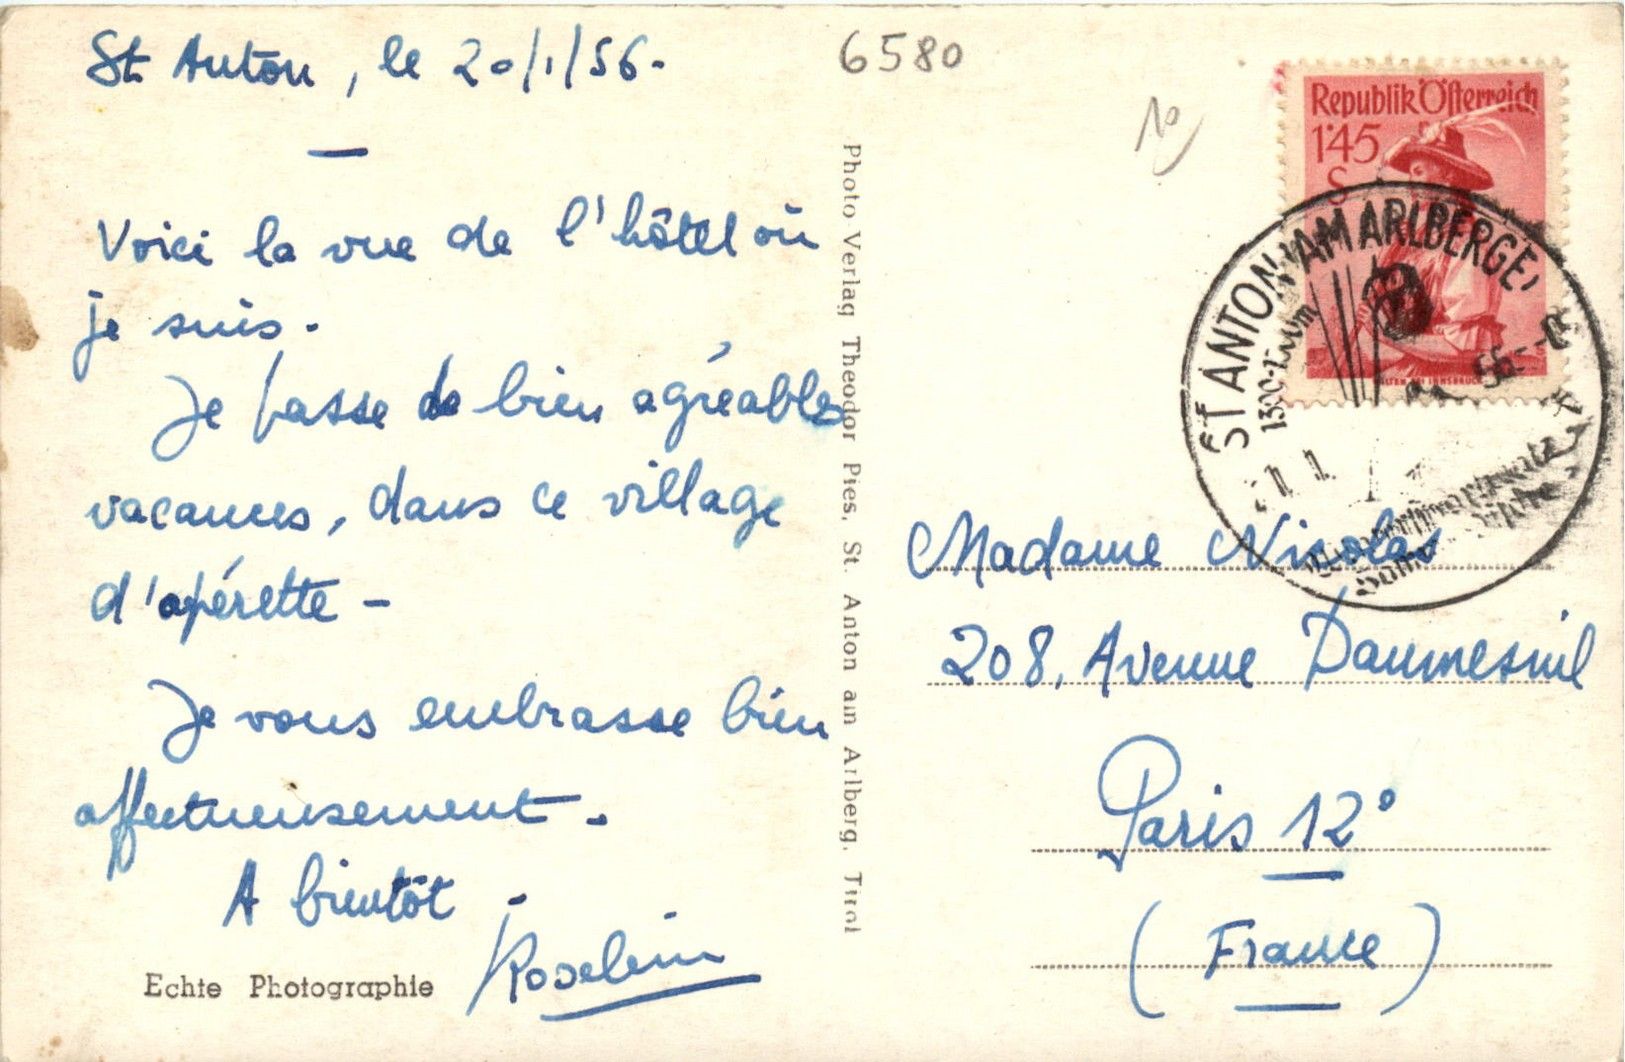 St Anton, le 20/1/56.
Voici la vue de l'hôtel où
je suis.
Je passe de bien agréables
vacances, dans ce village
d'opérette -
Je vous embrasse bien
affectueusement -
A bientôt -
Roselin
Echte Photographie
6580
Photo Verlag Theodor Pies, St. Anton am Arlberg, Tirol
Republik Österreich
1·45
S
ST ANTON AM ARLBERG
56
Madame Nicolas
208, Avenue Daumesnil
Paris 12°
(France)